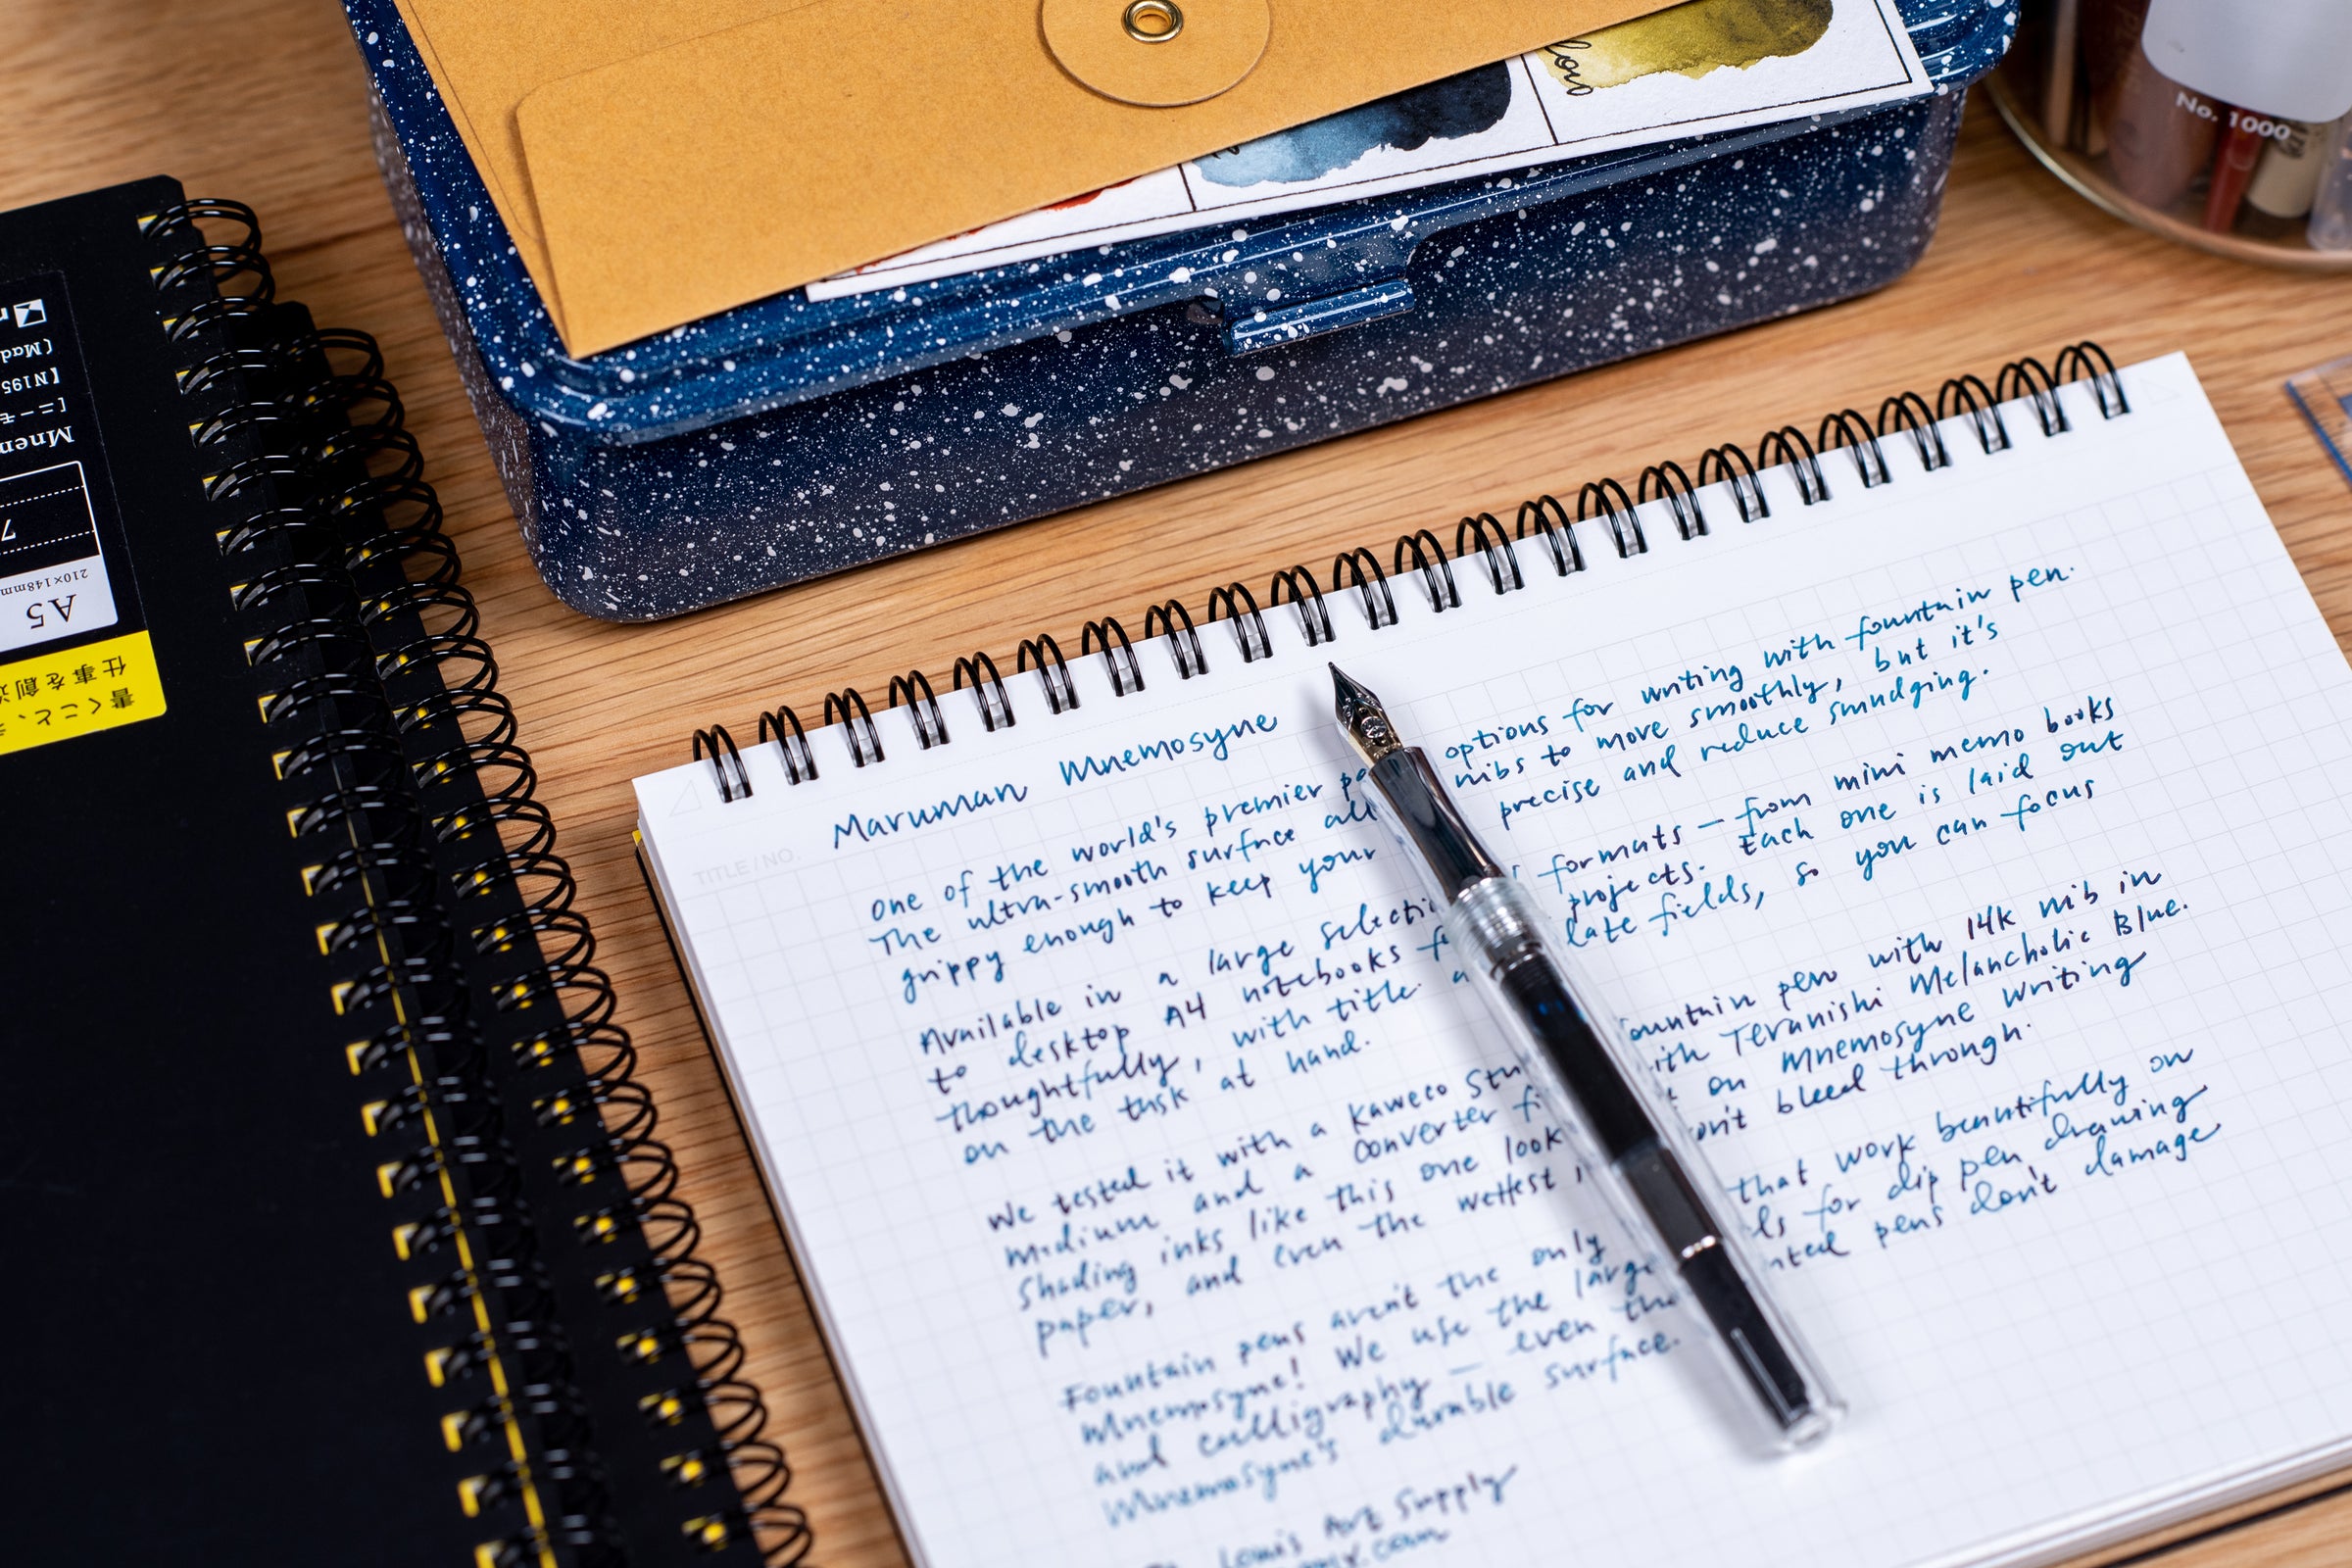 No. 1000
low
Mnem
【N195
(Mad
7
A5
210×148mm
書くこと、
仕事を創造
TITLE / NO.
Maruman Mnemosyne
One of the world's premier options for writing with fountain pen.
The ultra-smooth surface all nibs to move smoothly, but it's
grippy enough to keep your precise and reduce smudging.
Available in a large selection formats — from mini memo books
to desktop A4 notebooks projects. Each one is laid out
thoughtfully, with title late fields, so you can focus
on the task at hand.
We tested it with a Kaweco fountain pen with 14K nib in
Medium and a converter with Teranishi Melancholic Blue.
Shading inks like this one look on Mnemosyne writing
paper, and even the wettest won't bleed through.
Fountain pens aren't the only that work beautifully on
Mnemosyne! We use the large for dip pen drawing
and calligraphy — even the pens don't damage
Mnemosyne's durable surface.
Louis Art Supply